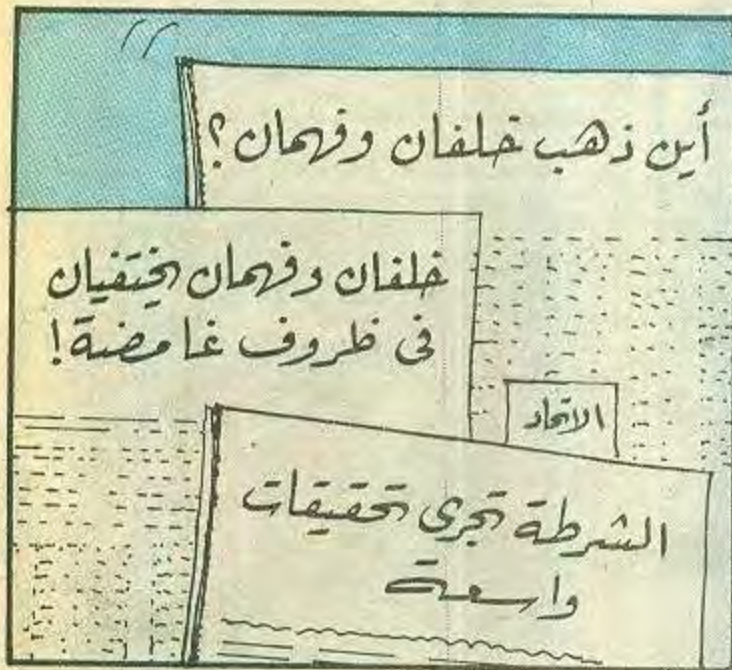 أين ذهب خلفان وفهمان؟
خلفان وفهمان يختفيان
فى ظروف غامضة!
الاتحاد
الشرطة تجرى تحقيقات
واسعة